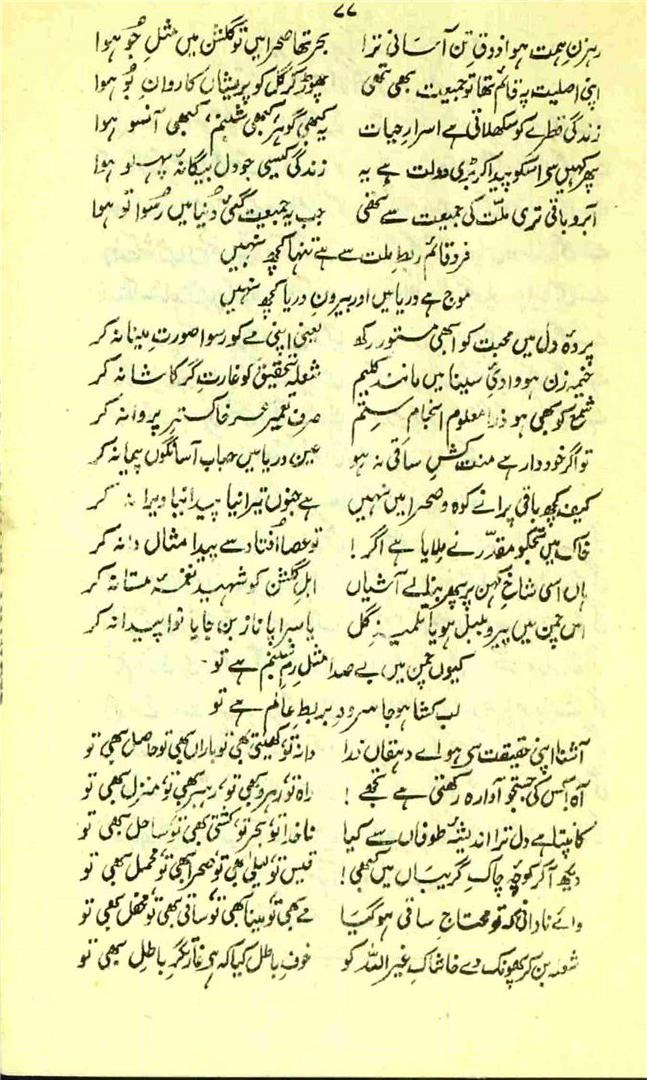 ۷۷
رہزنِ ہمت ہوا ذوقِ تن آسانی ترا بحر تھا صحرا میں تو گلشن میں مثلِ جُو ہوا
اپنی اصلیت پہ قائم تھا تو جمعیت بھی تھی چھوڑ کر گل کو پریشاں کاروانِ بُو ہوا
زندگی قطرے کو سکھلاتی ہے اسرارِ حیات یہ کبھی گوہر، کبھی شبنم، کبھی آنسو ہوا
پھر کہیں سے اسکو پیدا کر بڑی دولت ہے یہ زندگی کیسی جو دل بیگانۂ پہلو ہوا
آبرو باقی تری ملّت کی جمعیت سے تھی جب یہ جمعیت گئی دُنیا میں رُسوا تو ہوا
فرد قائم ربطِ ملت سے ہے تنہا کچھ نہیں
موج ہے دریا میں اور بیرونِ دریا کچھ نہیں
پردۂ دل میں محبت کو ابھی مستور رکھ یعنی اپنی مے کو رسوا صورتِ مینا نہ کر
خیمہ زن ہو وادیٔ سینا میں مانند کلیم شعلۂ تحقیق کو غارت گرِ کاشانہ کر
شمع کو بھی ہو ذرا معلوم انجامِ ستم صرفِ تعمیرِ سحر خاکسترِ پروانہ کر
تو اگر خود دار ہے منت کشِ ساقی نہ ہو عین دریا میں حباب آسا نگوں پیمانہ کر
کیف کچھ باقی پرانے کوہ و صحرا میں نہیں ہے جنوں تیرا نیا پیدا نیا ویرانہ کر
خاک میں تجھکو مقدّر نے ملایا ہے اگر! تو عصا افتاد سے پیدا مثال دانہ کر
ہاں اسی شاخِ کہن پر پھر بنا لے آشیاں اہلِ گلشن کو شہید نغمۂ مستانہ کر
اس چمن میں پیرو بلبل ہو یا تلمیذِ گل یا سراپا نالہ بن جا یا نوا پیدا نہ کر
کیوں چمن میں بے صدا مثلِ رمِ شبنم ہے تو
لب کشا ہو جا سرودِ بربطِ عالم ہے تو
آشنا اپنی حقیقت سے ہو اے دہقاں ذرا دانہ تو، کھیتی بھی تو باراں بھی تو حاصل بھی تو
آہ! کس کی جستجو آوارہ رکھتی ہے تجھے! راہ تو، رہرو بھی تو، رہبر بھی تو، منزل بھی تو
کانپتا ہے دل ترا اندیشۂ طوفاں سے کیا ناخدا تو، بحر تو، کشتی بھی تو، ساحل بھی تو
دیکھ آ کر کوچۂ چاکِ گریباں میں کبھی! قیس تو، لیلیٰ بھی تو، صحرا بھی تو، محمل بھی تو
وائے نادانی کہ تو محتاجِ ساقی ہو گیا مے بھی تو، مینا بھی تو، ساقی بھی تو، محفل بھی تو
شعلہ بن کر پھونک دے خاشاکِ غیر اللہ کو خوفِ باطل کیا کہ ہے غارتگرِ باطل بھی تو